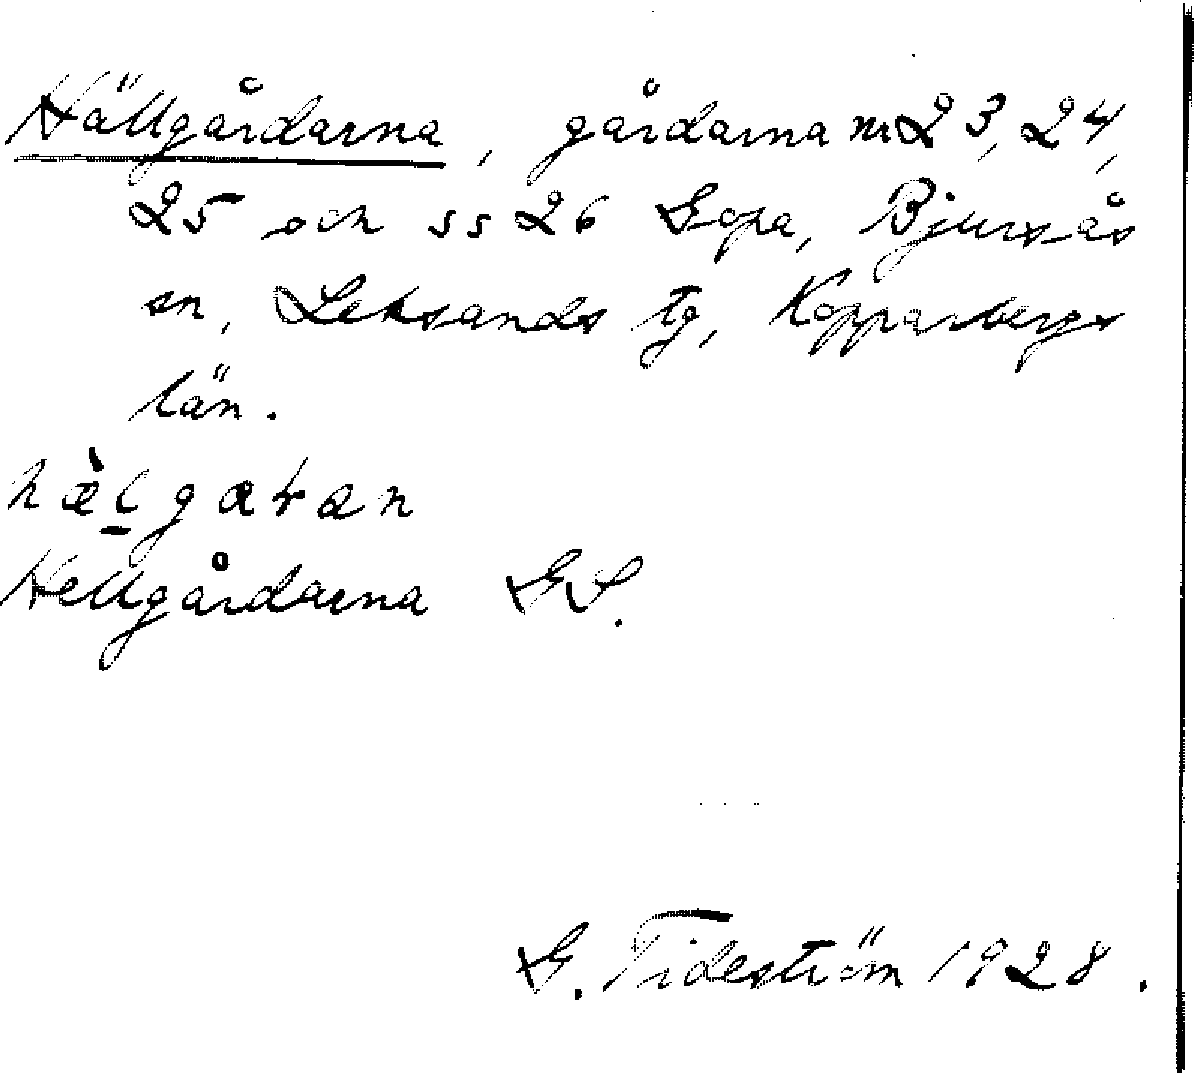 Hällgårdarna, gårdarna nr 23, 24,
25 och ss 26 Gopa, Bjursås
sn, Leksands tg, Kopparbergs
län.
hæ̀l̠garan
Hellgårdarna GS.
G. Tideström 1928.